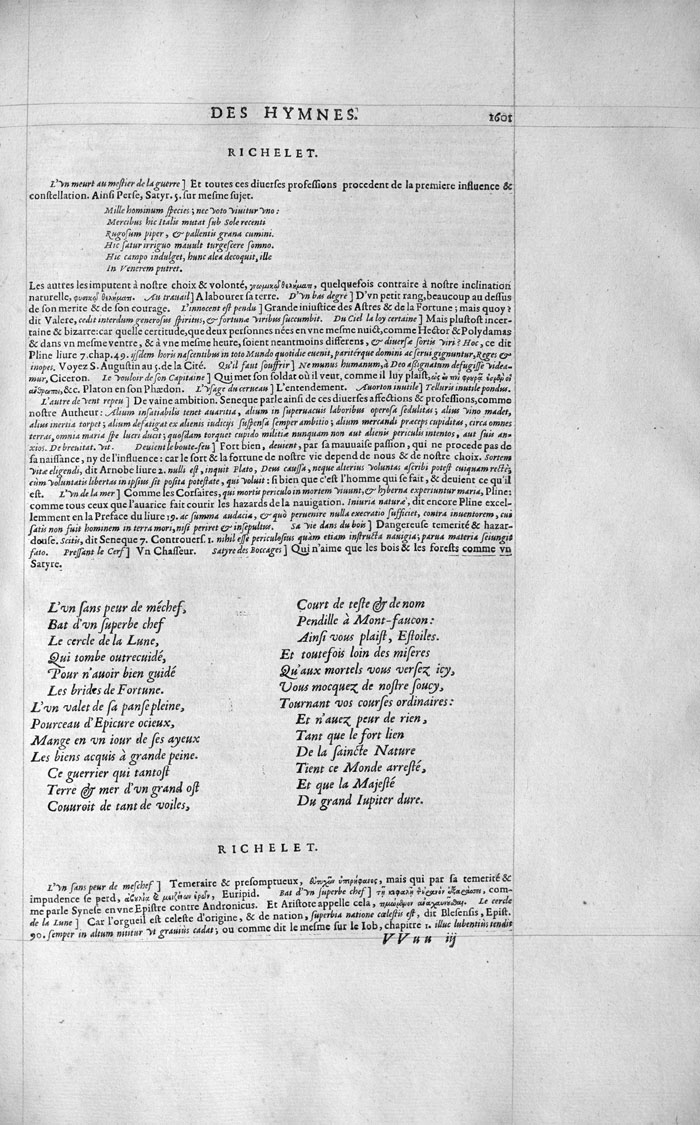 DES HYMNES.
1601
RICHELET.
L'vn meurt au mestier de la guerre] Et toutes ces diuerses professions procedent de la premiere influence &
constellation. Ainsi Perse, Satyr. 5. sur mesme sujet.
Mille hominum species; nec voto viuitur vno:
Mercibus hic Italis mutat sub Sole recenti
Rugosum piper, & pallentis grana cumini.
Hic satur irriguo mauult turgescere somno.
Hic campo indulget, hunc alea decoquit, ille
In Venerem putret.
Les autres les imputent à nostre choix & volonté, quelquefois contraire à nostre inclination
naturelle, Au trauail] A labourer sa terre. D'vn bas degré] D'vn petit rang, beaucoup au dessus
de son merite & de son courage. L'innocent est pendu] Grande iniustice des Astres & de la Fortune; mais quoy?
dit Valere, cedit interdum generosus spiritus, & fortunæ viribus succumbit. Du Ciel la loy certaine] Mais plustost incer-
taine & bizarre: car quelle certitude, que deux personnes nées en vne mesme nuict, comme Hector & Polydamas
& dans vn mesme ventre, & à vne mesme heure, soient neantmoins differens, & diuersæ sortis viri? Hoc, ce dit
Pline liure 7. chap. 49. ijsdem horis nascentibus in toto Mundo quotidie euenit, paritérque domini ac serui gignuntur, Reges &
inopes. Voyez S. Augustin au 5. de la Cité. Qu'il faut souffrir] Ne munus humanum, à Deo assignatum defugisse videa-
mur, Ciceron. Le vouloir de son Capitaine] Qui met son soldat où il veut, comme il luy plaist,
&c. Platon en son Phædon. L'vsage du cerueau] L'entendement. Auorton inutile] Telluris inutile pondus.
L'autre de vent repeu] De vaine ambition. Seneque parle ainsi de ces diuerses affections & professions, comme
nostre Autheur: Alium insatiabilis tenet auaritia, alium in superuacuis laboribus operosa sedulitas; alius vino madet,
alius inertia torpet; alium defatigat ex alienis iudicijs suspensa semper ambitio; alium mercandi præceps cupiditas, circa omnes
terras, omnia maria spe lucri ducit; quosdam torquet cupido militiæ nunquam non aut alienis periculis intentos, aut suis an-
xios. De breuitat. vit. Deuient le boute-feu] Fort bien, deuient, par sa mauuaise passion, qui ne procede pas de
sa naissance, ny de l'influence: car le sort & la fortune de nostre vie depend de nous & de nostre choix. Sortem
vitæ eligendi, dit Arnobe liure 2. nulli est, inquit Plato, Deus caussa, neque alterius voluntas ascribi potest cuiquam rectè,
cùm voluntatis libertas in ipsius sit posita potestate, qui voluit: si bien que c'est l'homme qui se fait, & deuient ce qu'il
est. L'vn de la mer] Comme les Corsaires, qui mortis periculo in mortem viuunt, & hyberna experiuntur maria, Pline:
comme tous ceux que l'auarice fait courir les hazards de la nauigation. Iniuria naturæ, dit encore Pline excel-
lemment en la Preface du liure 19. ac summa audacia, & quò peruenire nulla execratio sufficiet, contra inuentorem, cui
satis non fuit hominem in terra mori, nisi periret & insepultus. Sa vie dans du bois] Dangereuse temerité & hazar-
douse. Scitis, dit Seneque 7. Controuers. 1. nihil esse periculosius quàm etiam instructa nauigia; parua materia seiungit
fato. Pressant le Cerf] Vn Chasseur. Satyre des Boccages] Qui n'aime que les bois & les forests comme vn
Satyre.
L'vn sans peur de méchef,
Bat d'vn superbe chef
Le cercle de la Lune,
Qui tombe outrecuidé,
Pour n'auoir bien guidé
Les brides de Fortune.
L'vn valet de sa panse pleine,
Pourceau d'Epicure ocieux,
Mange en vn iour de ses ayeux
Les biens acquis à grande peine.
Ce guerrier qui tantost
Terre & mer d'vn grand ost
Couuroit de tant de voiles,
Court de teste & de nom
Pendille à Mont-faucon:
Ainsi vous plaist, Estoiles.
Et toutefois loin des miseres
Qu'aux mortels vous versez icy,
Vous mocquez de nostre soucy,
Tournant vos courses ordinaires:
Et n'auez peur de rien,
Tant que le fort lien
De la saincte Nature
Tient ce Monde arresté,
Et que la Majesté
Du grand Iupiter dure.
RICHELET.
L'vn sans peur de meschef] Temeraire & presomptueux, mais qui par sa temerité &
impudence se perd, Euripid. Bat d'vn superbe chef] com-
me parle Synese en vne Epistre contre Andronicus. Et Aristote appelle cela, Le cercle
de la Lune] Car l'orgueil est celeste d'origine, & de nation, superbia natione cœlestis est, dit Blesensis, Epist.
90. semper in altum nititur vt grauius cadat; ou comme dit le mesme sur le Iob, chapitre 1. illuc lubentius tendit
VVuu iij